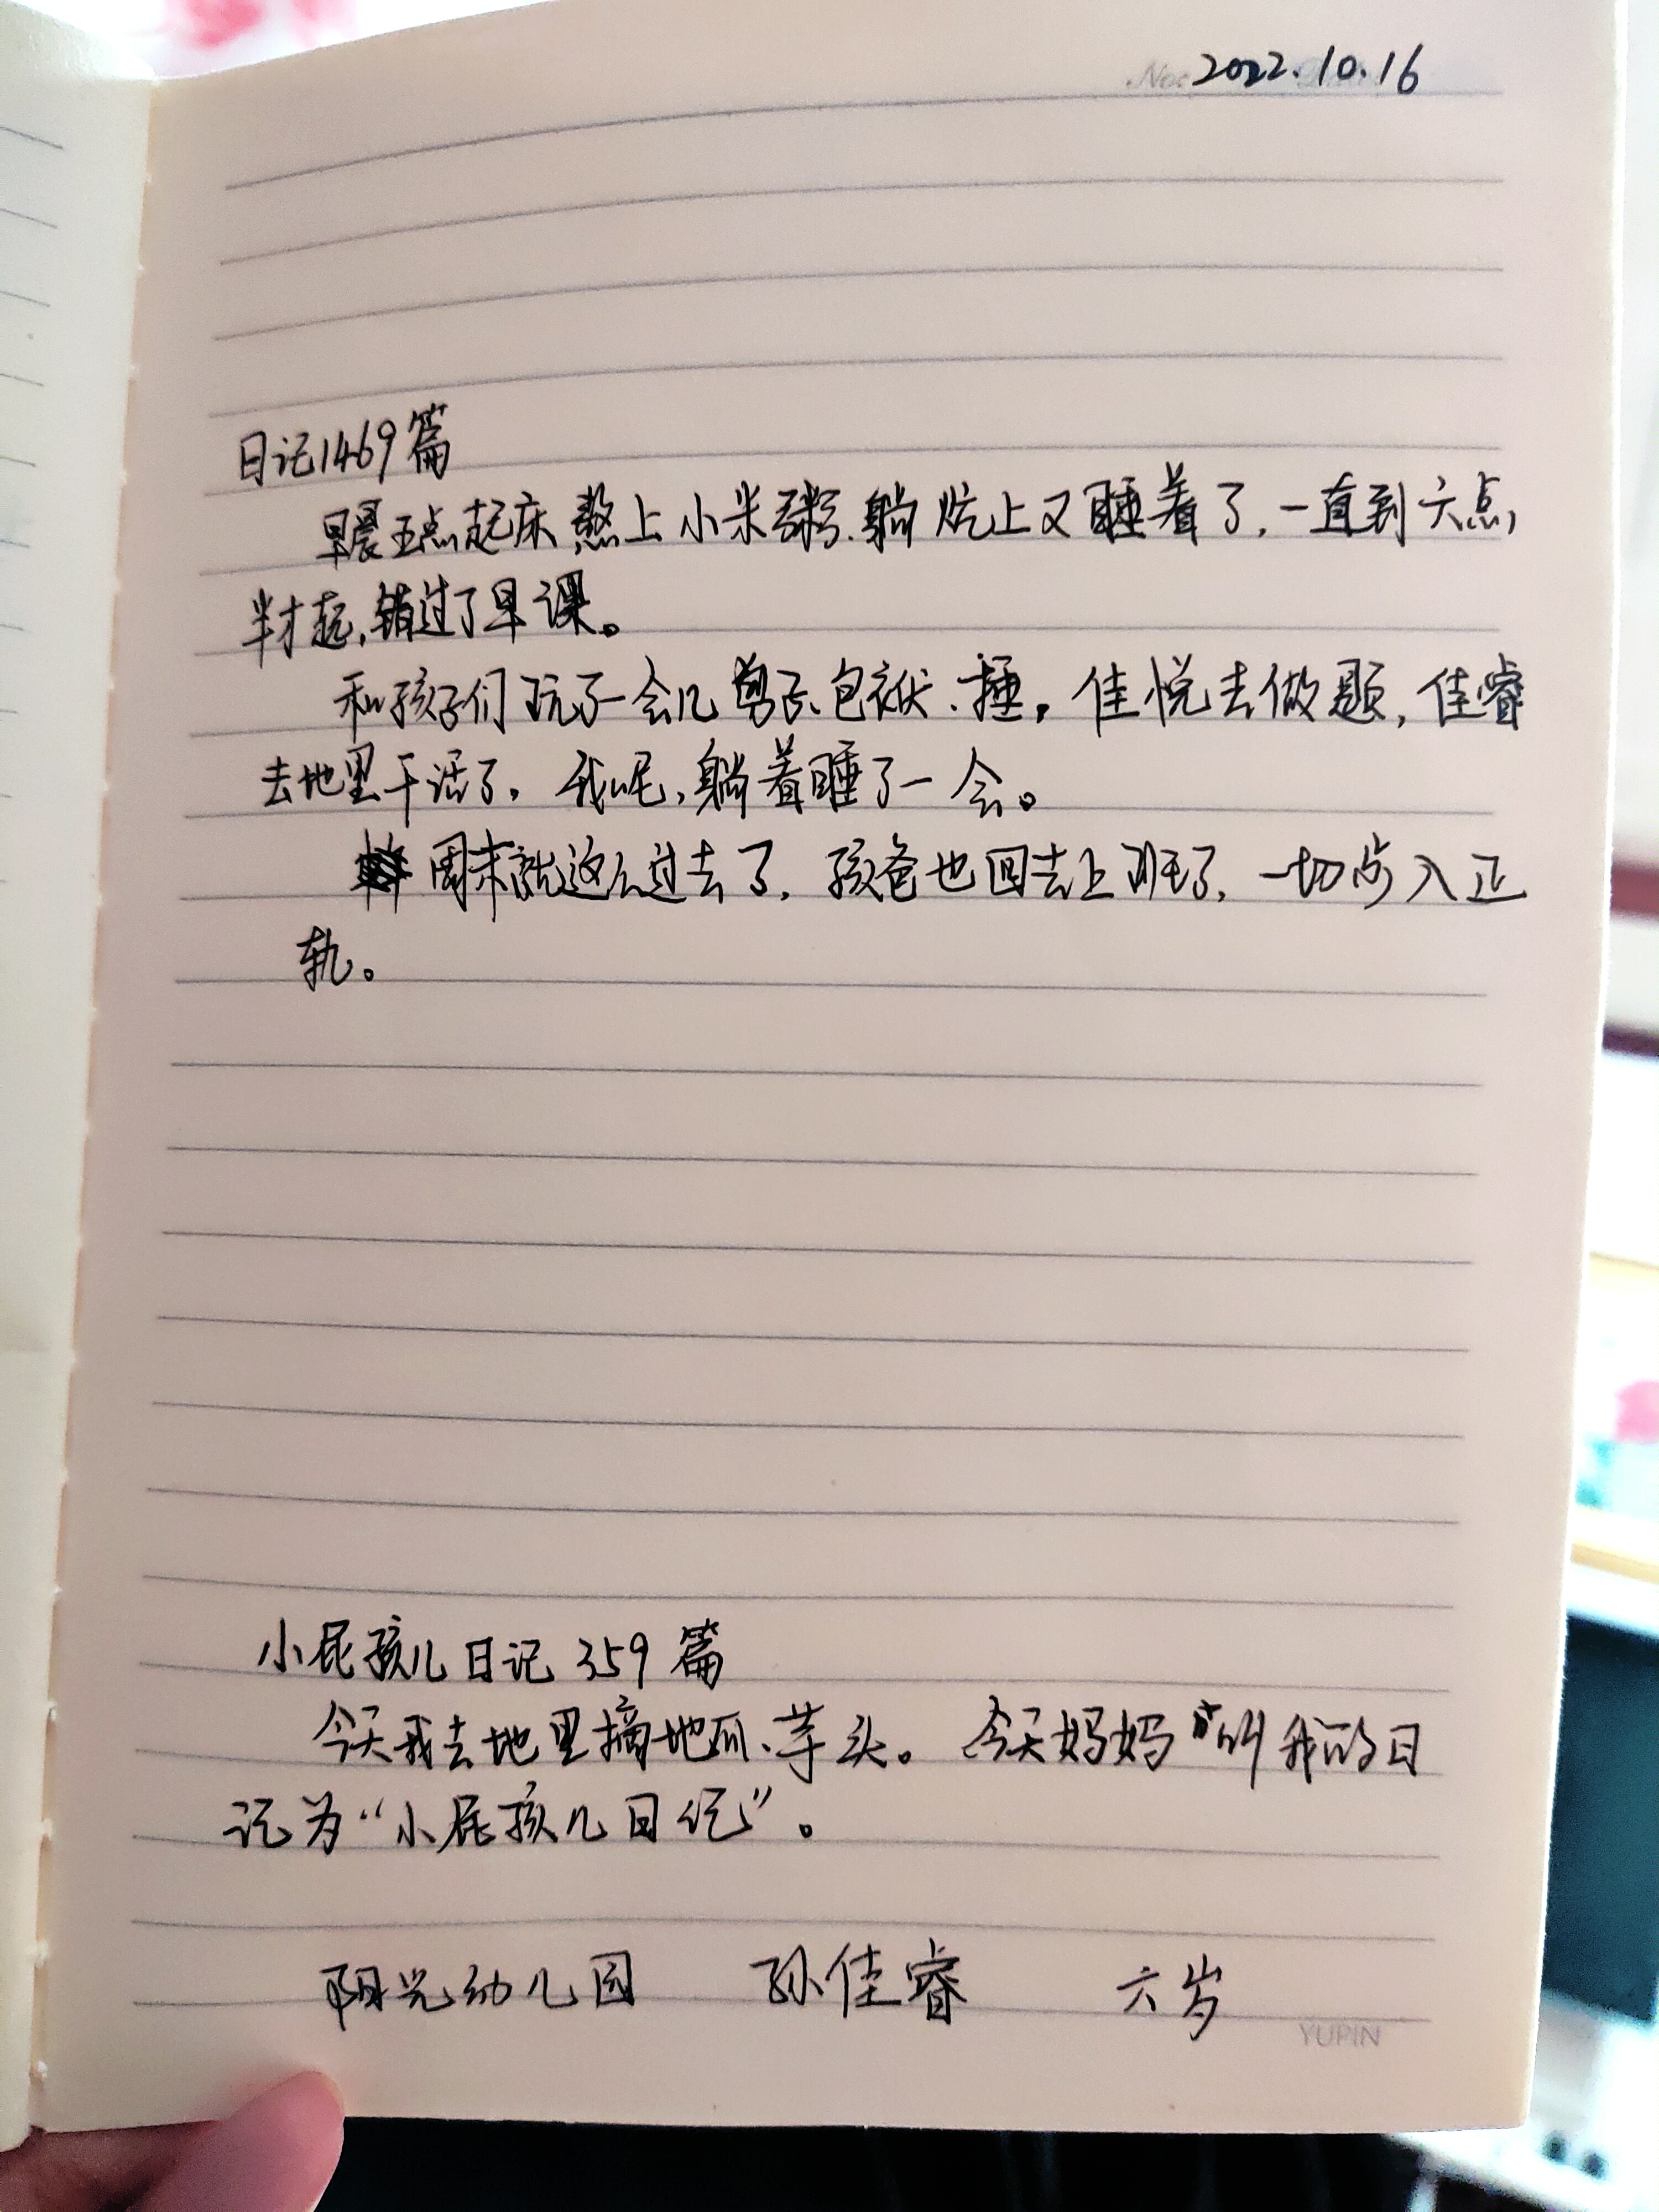 2022.10.16
日记1469篇
早晨五点起床熬上小米粥.躺炕上又睡着了,一直到六点,
半才起,错过了早课。
和孩子们玩了一会儿剪子、包袱、捶。佳悦去做题,佳睿
去地里干活了。我呢,躺着睡了一会。
周末就这么过去了,孩爸也回去上班了,一切步入正
轨。
小屁孩儿日记359篇
今天我去地里摘地瓜、芋头。今天妈妈叫我的日
记为“小屁孩儿日记”。
阳光幼儿园 孙佳睿 六岁
YUPIN